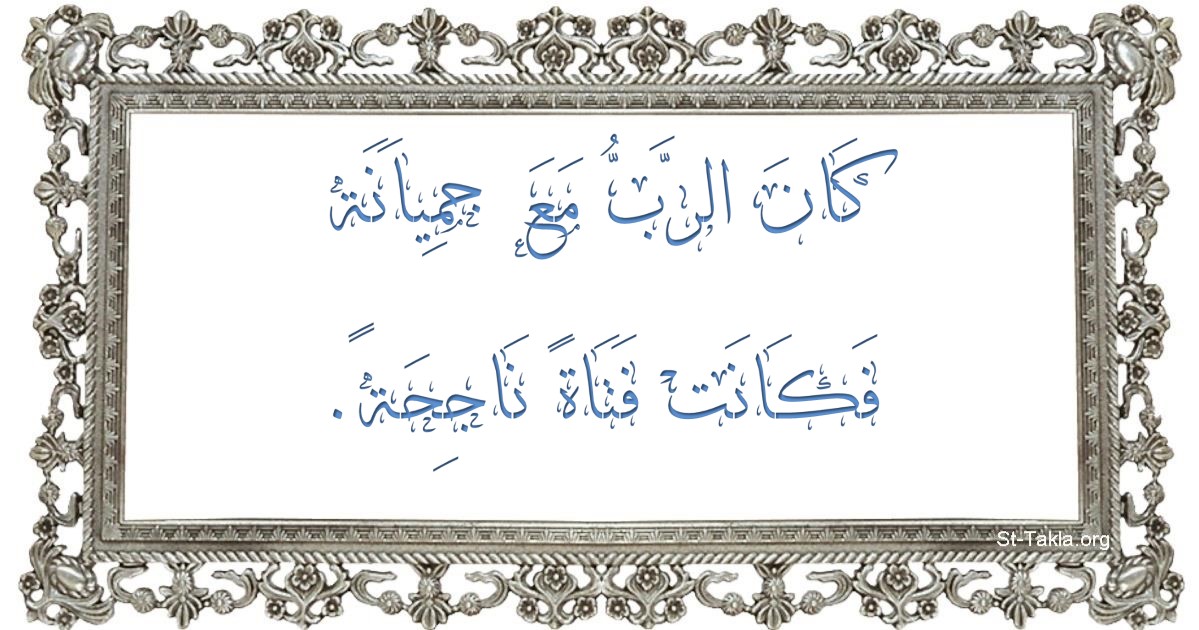 كَانَ الرَّبُّ مَعَ جِميَانَةَ
فَكَانَتْ فَتَاةً نَاجِحَةً.
St-Takla.org